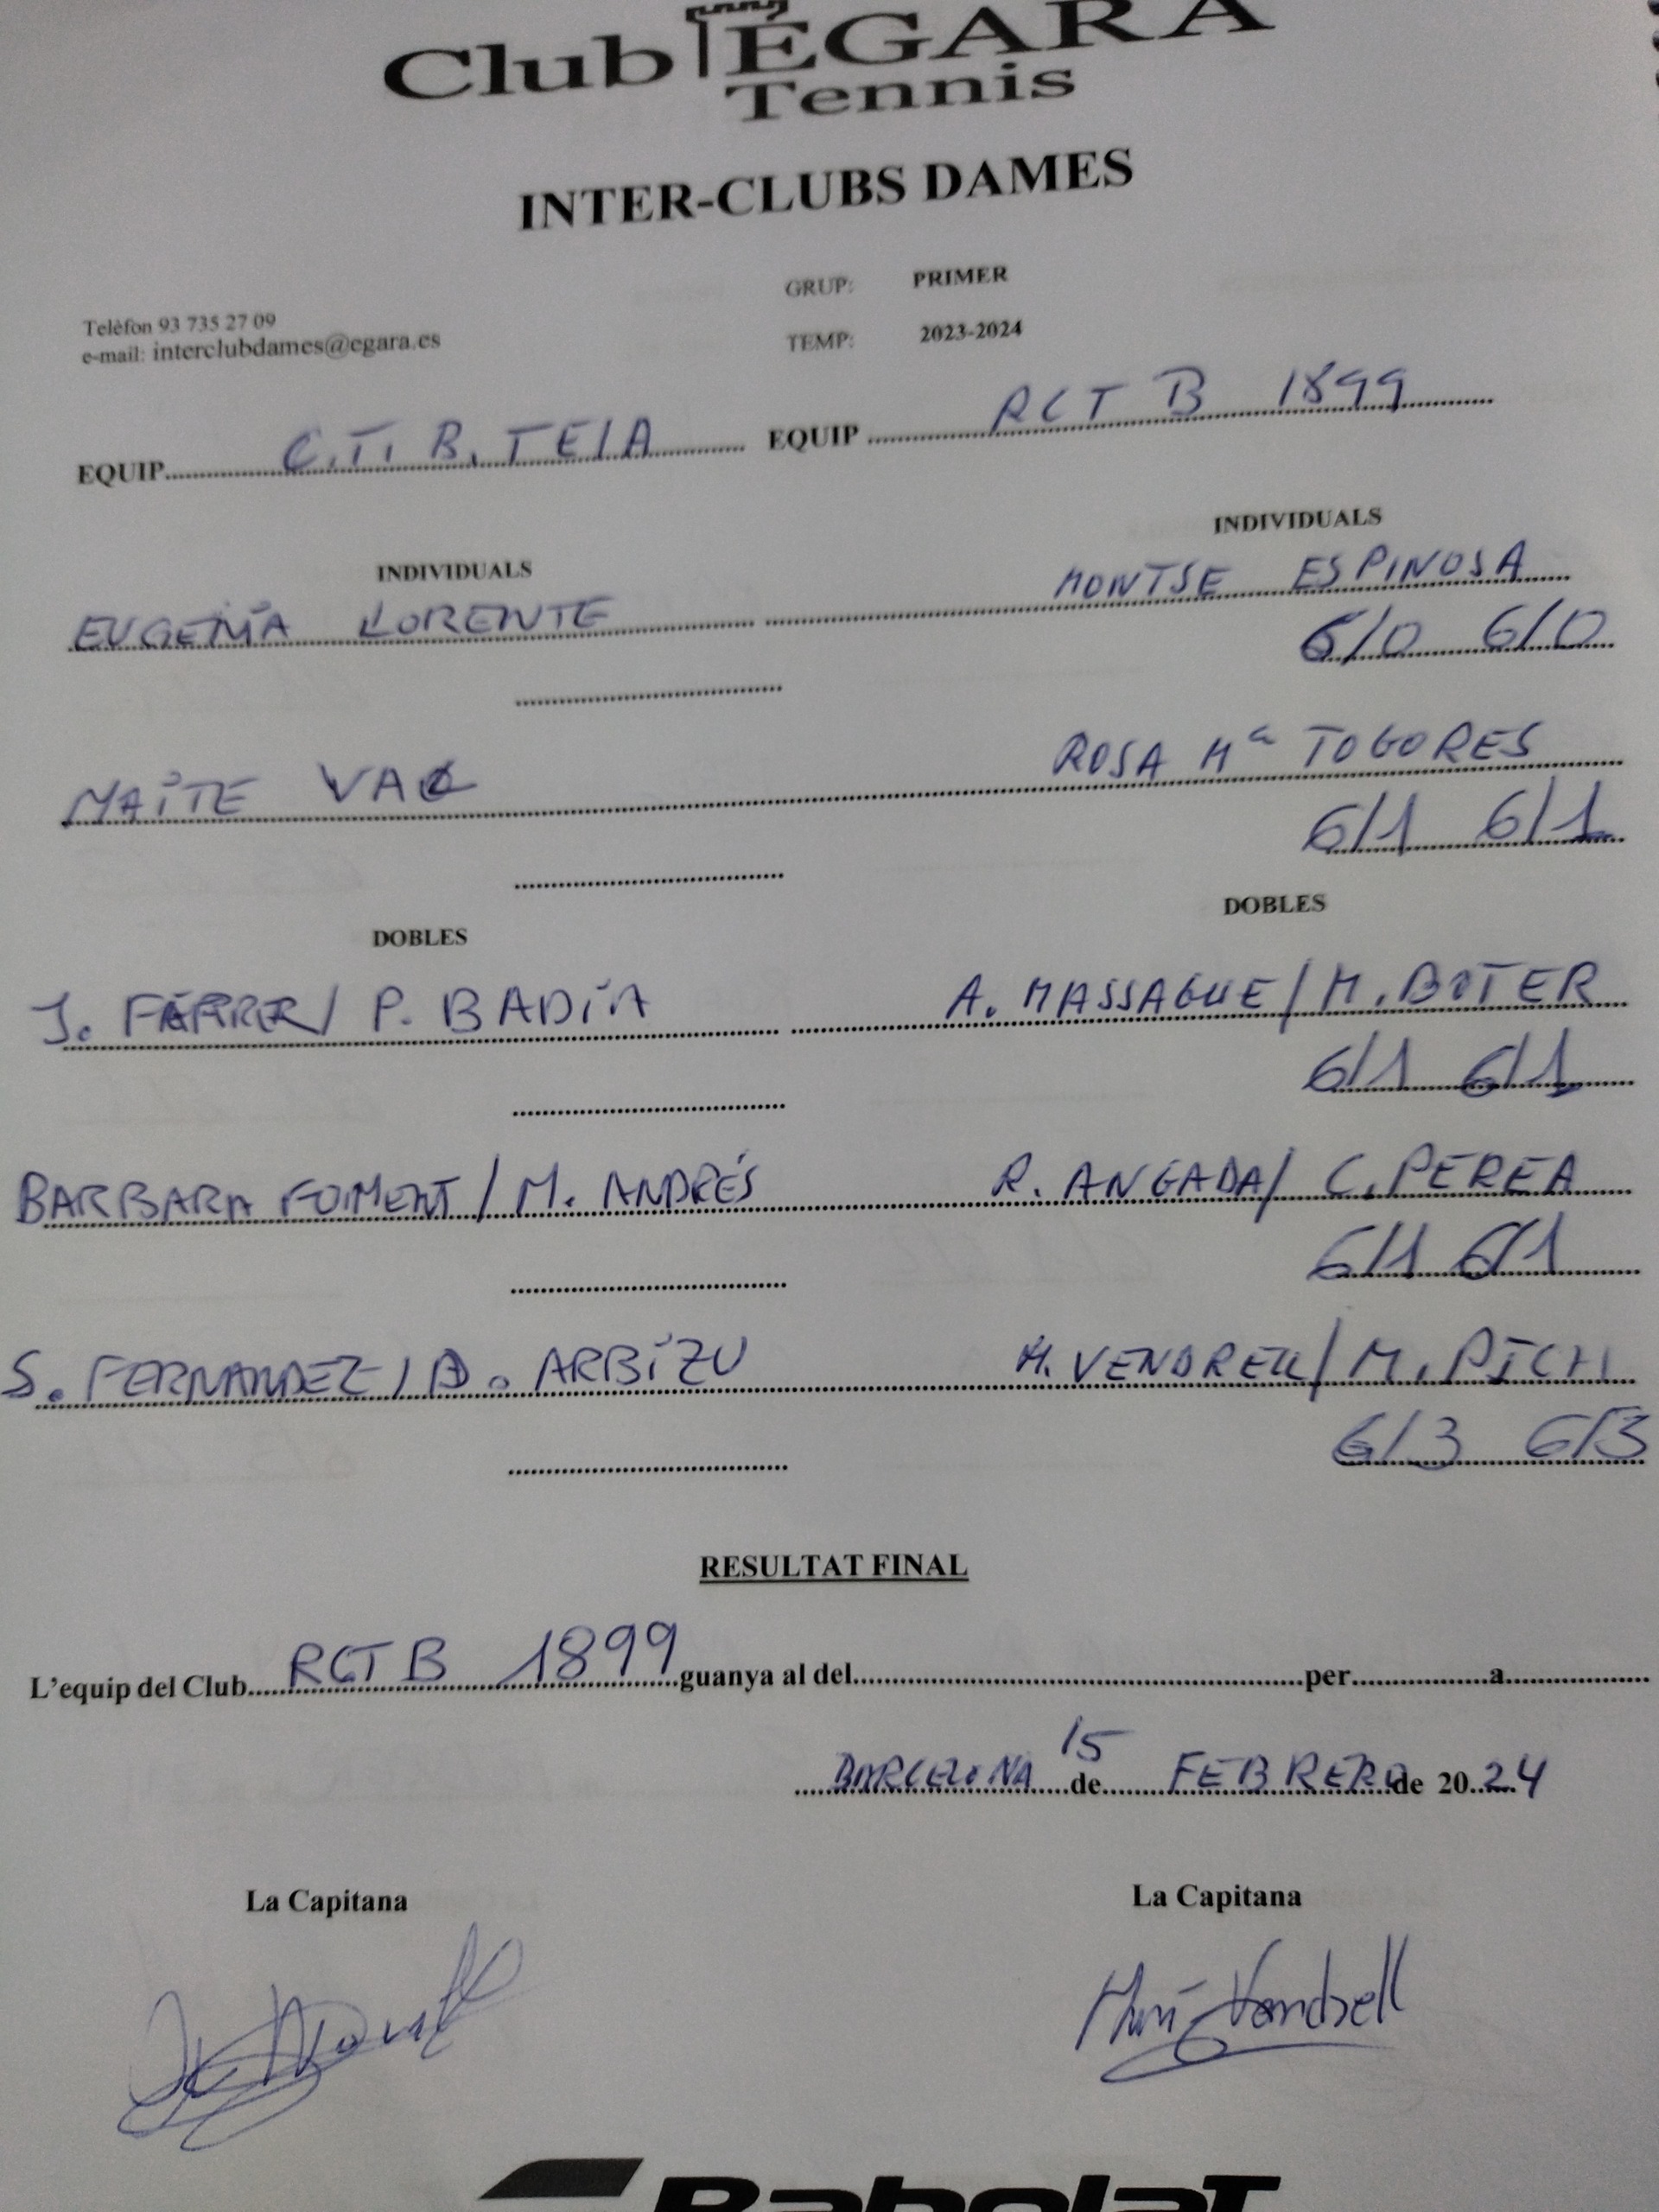 Club ÈGARA
Tennis
INTER-CLUBS DAMES
GRUP: PRIMER
Telèfon 93 735 27 09
TEMP: 2023-2024
e-mail: interclubdames@egara.es
EQUIP C.T. B. TEIA EQUIP RCT B 1899
INDIVIDUALS INDIVIDUALS
EUGENIA LORENTE MONTSE ESPINOSA
6/0 6/0
MAITE ROSA Mª TOGORES
6/1 6/1
DOBLES DOBLES
J. FARRE / P. BADÍA A. MASSAGUE / M. BOTER
6/1 6/1
BARBARA FOMENT / M. ANDRÉS R. ANGADA / C. PEREA
6/1 6/1
S. FERNANDEZ / D. ARBIZU M. VENDRELL / M. PICH
6/3 6/3
RESULTAT FINAL
L'equip del Club RCTB 1899 guanya al del per a
BARCELONA 15 de FEBRERO de 2024
La Capitana La Capitana
Vendrell
Babolat